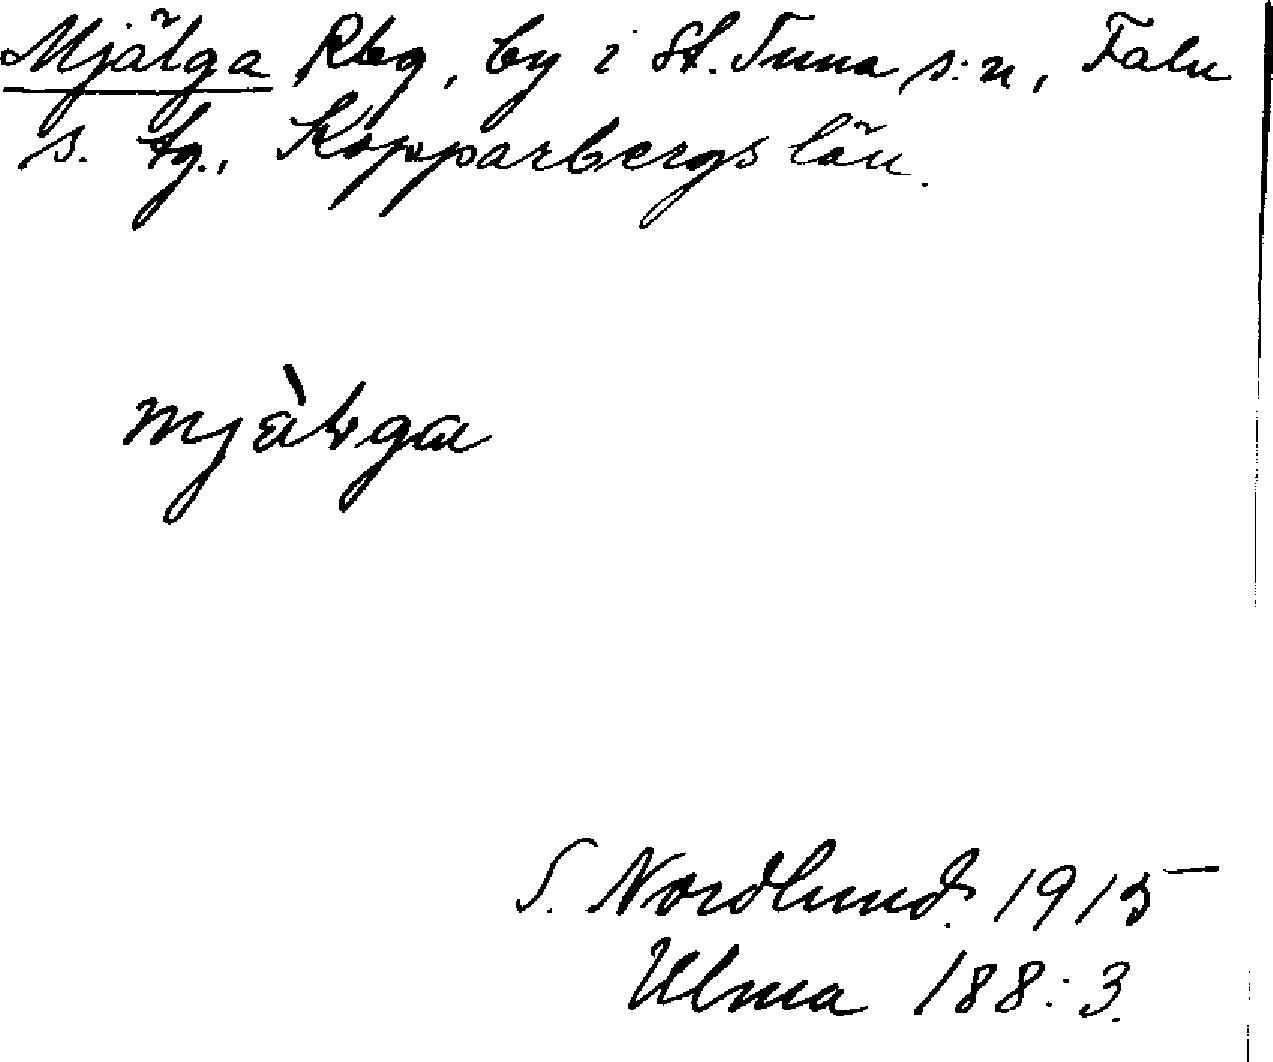 Mjälga Rbg, by i St. Tuna s:n, Falu
s. tg., Kopparbergs län.
mjàlga
S. Nordlund. 1915
Ulma 188:3.